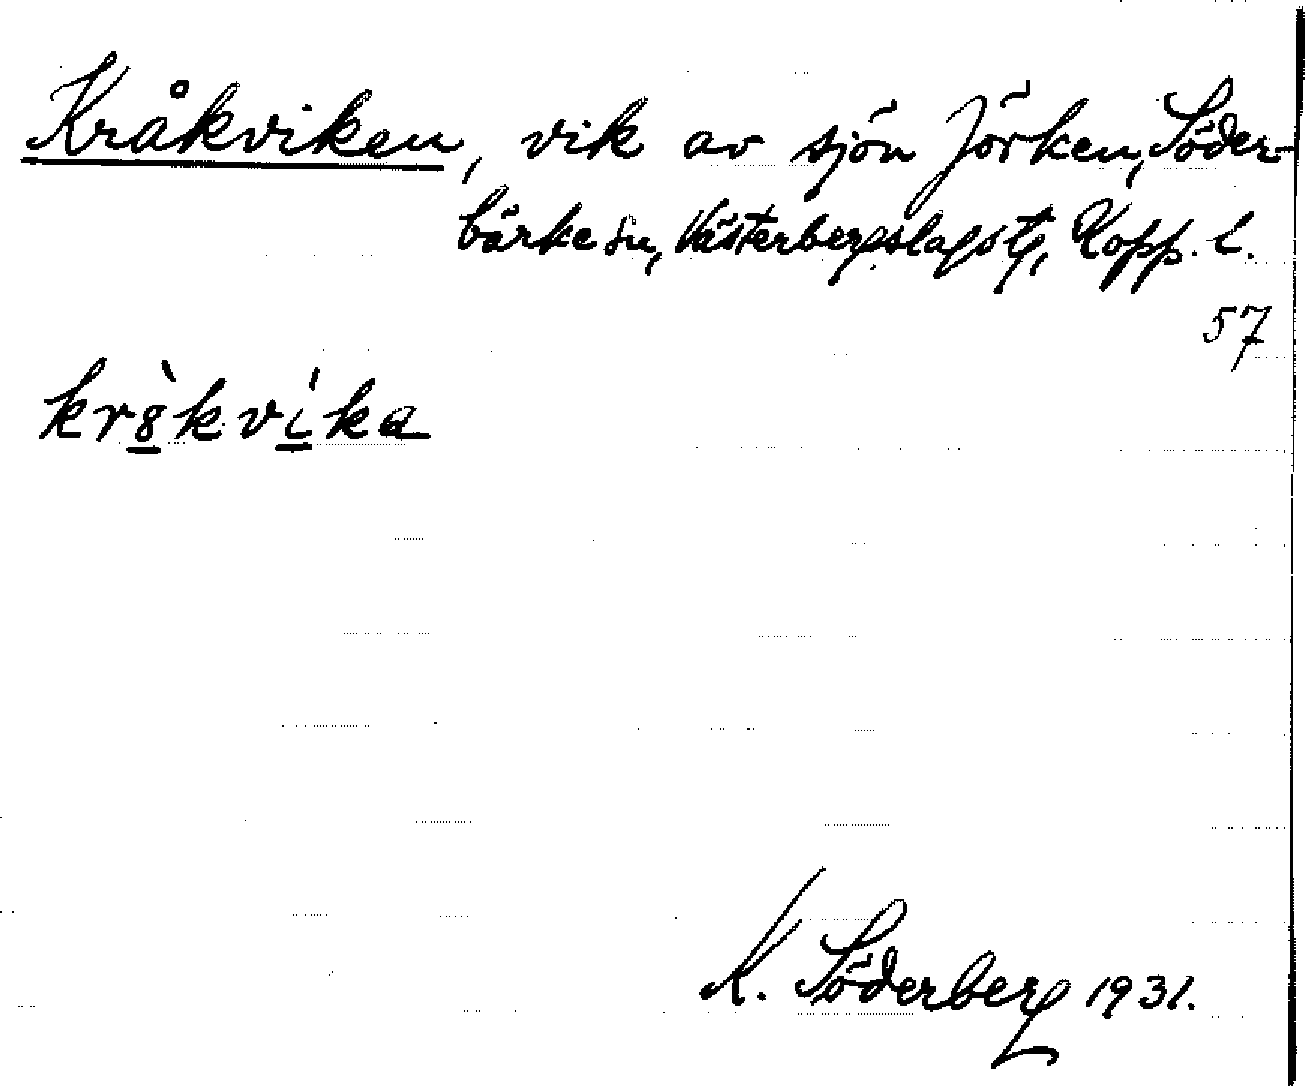 Kråkviken, vik av sjön Jörken, Söder-
bärke sn, Västerbergslags tg, Kopp. l.
57
kr8̠̀kvi̠̍ka
K. Söderberg 1931.